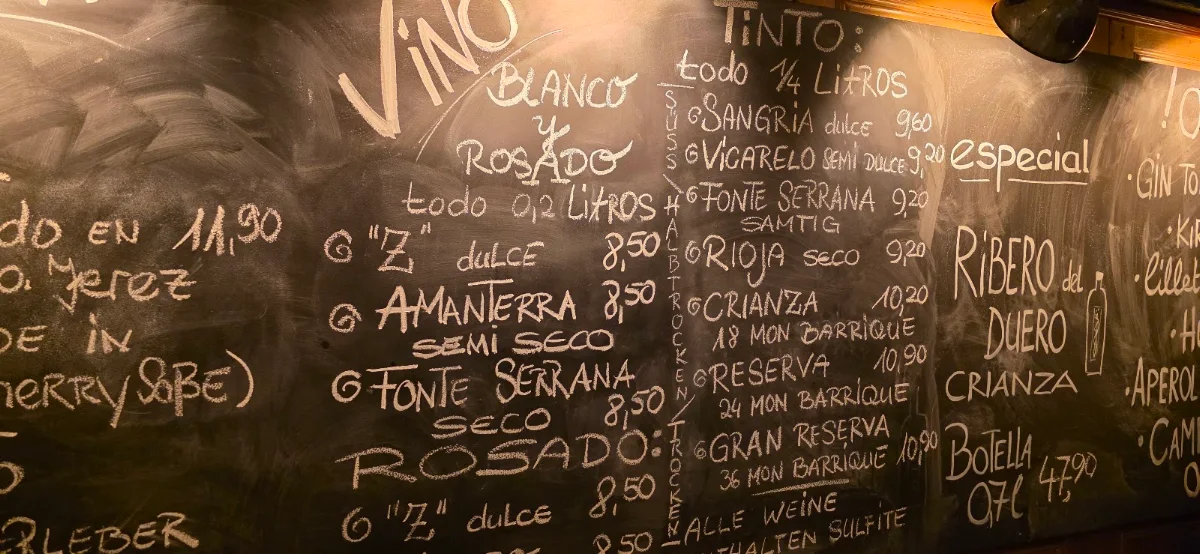 do EN 11,90
Jerez
DE IN
HERRYSOßE)
RLEBER
VINO
BLANCO
y
ROSADO
todo 0,2 LITROS
"Z" dULCE 8,50
AMANTERRA 8,50
SEMI SECO
FONTE SERRANA
SECO 8,50
ROSADO:
"Z" dulce 8,50
8,50
SÜSS / HALBTROCKEN / TROCKEN
TINTO:
todo 1/4 LITROS
SANGRIA dulce 9,60
VICARELO SEMI DULCE 9,20
FONTE SERRANA 9,20
SAMTIG
RIOJA seco 9,20
CRIANZA 10,20
18 MON BARRIQUE
RESERVA 10,90
24 MON BARRIQUE
GRAN RESERVA
36 MON BARRIQUE 10,90
ALLE WEINE
THALTEN SULFITE
especial
RIBERO del
DUERO
CRIANZA
BOTELLA
0,7l 47,90
GIN TO
KIR
lillet
APEROL
CAM